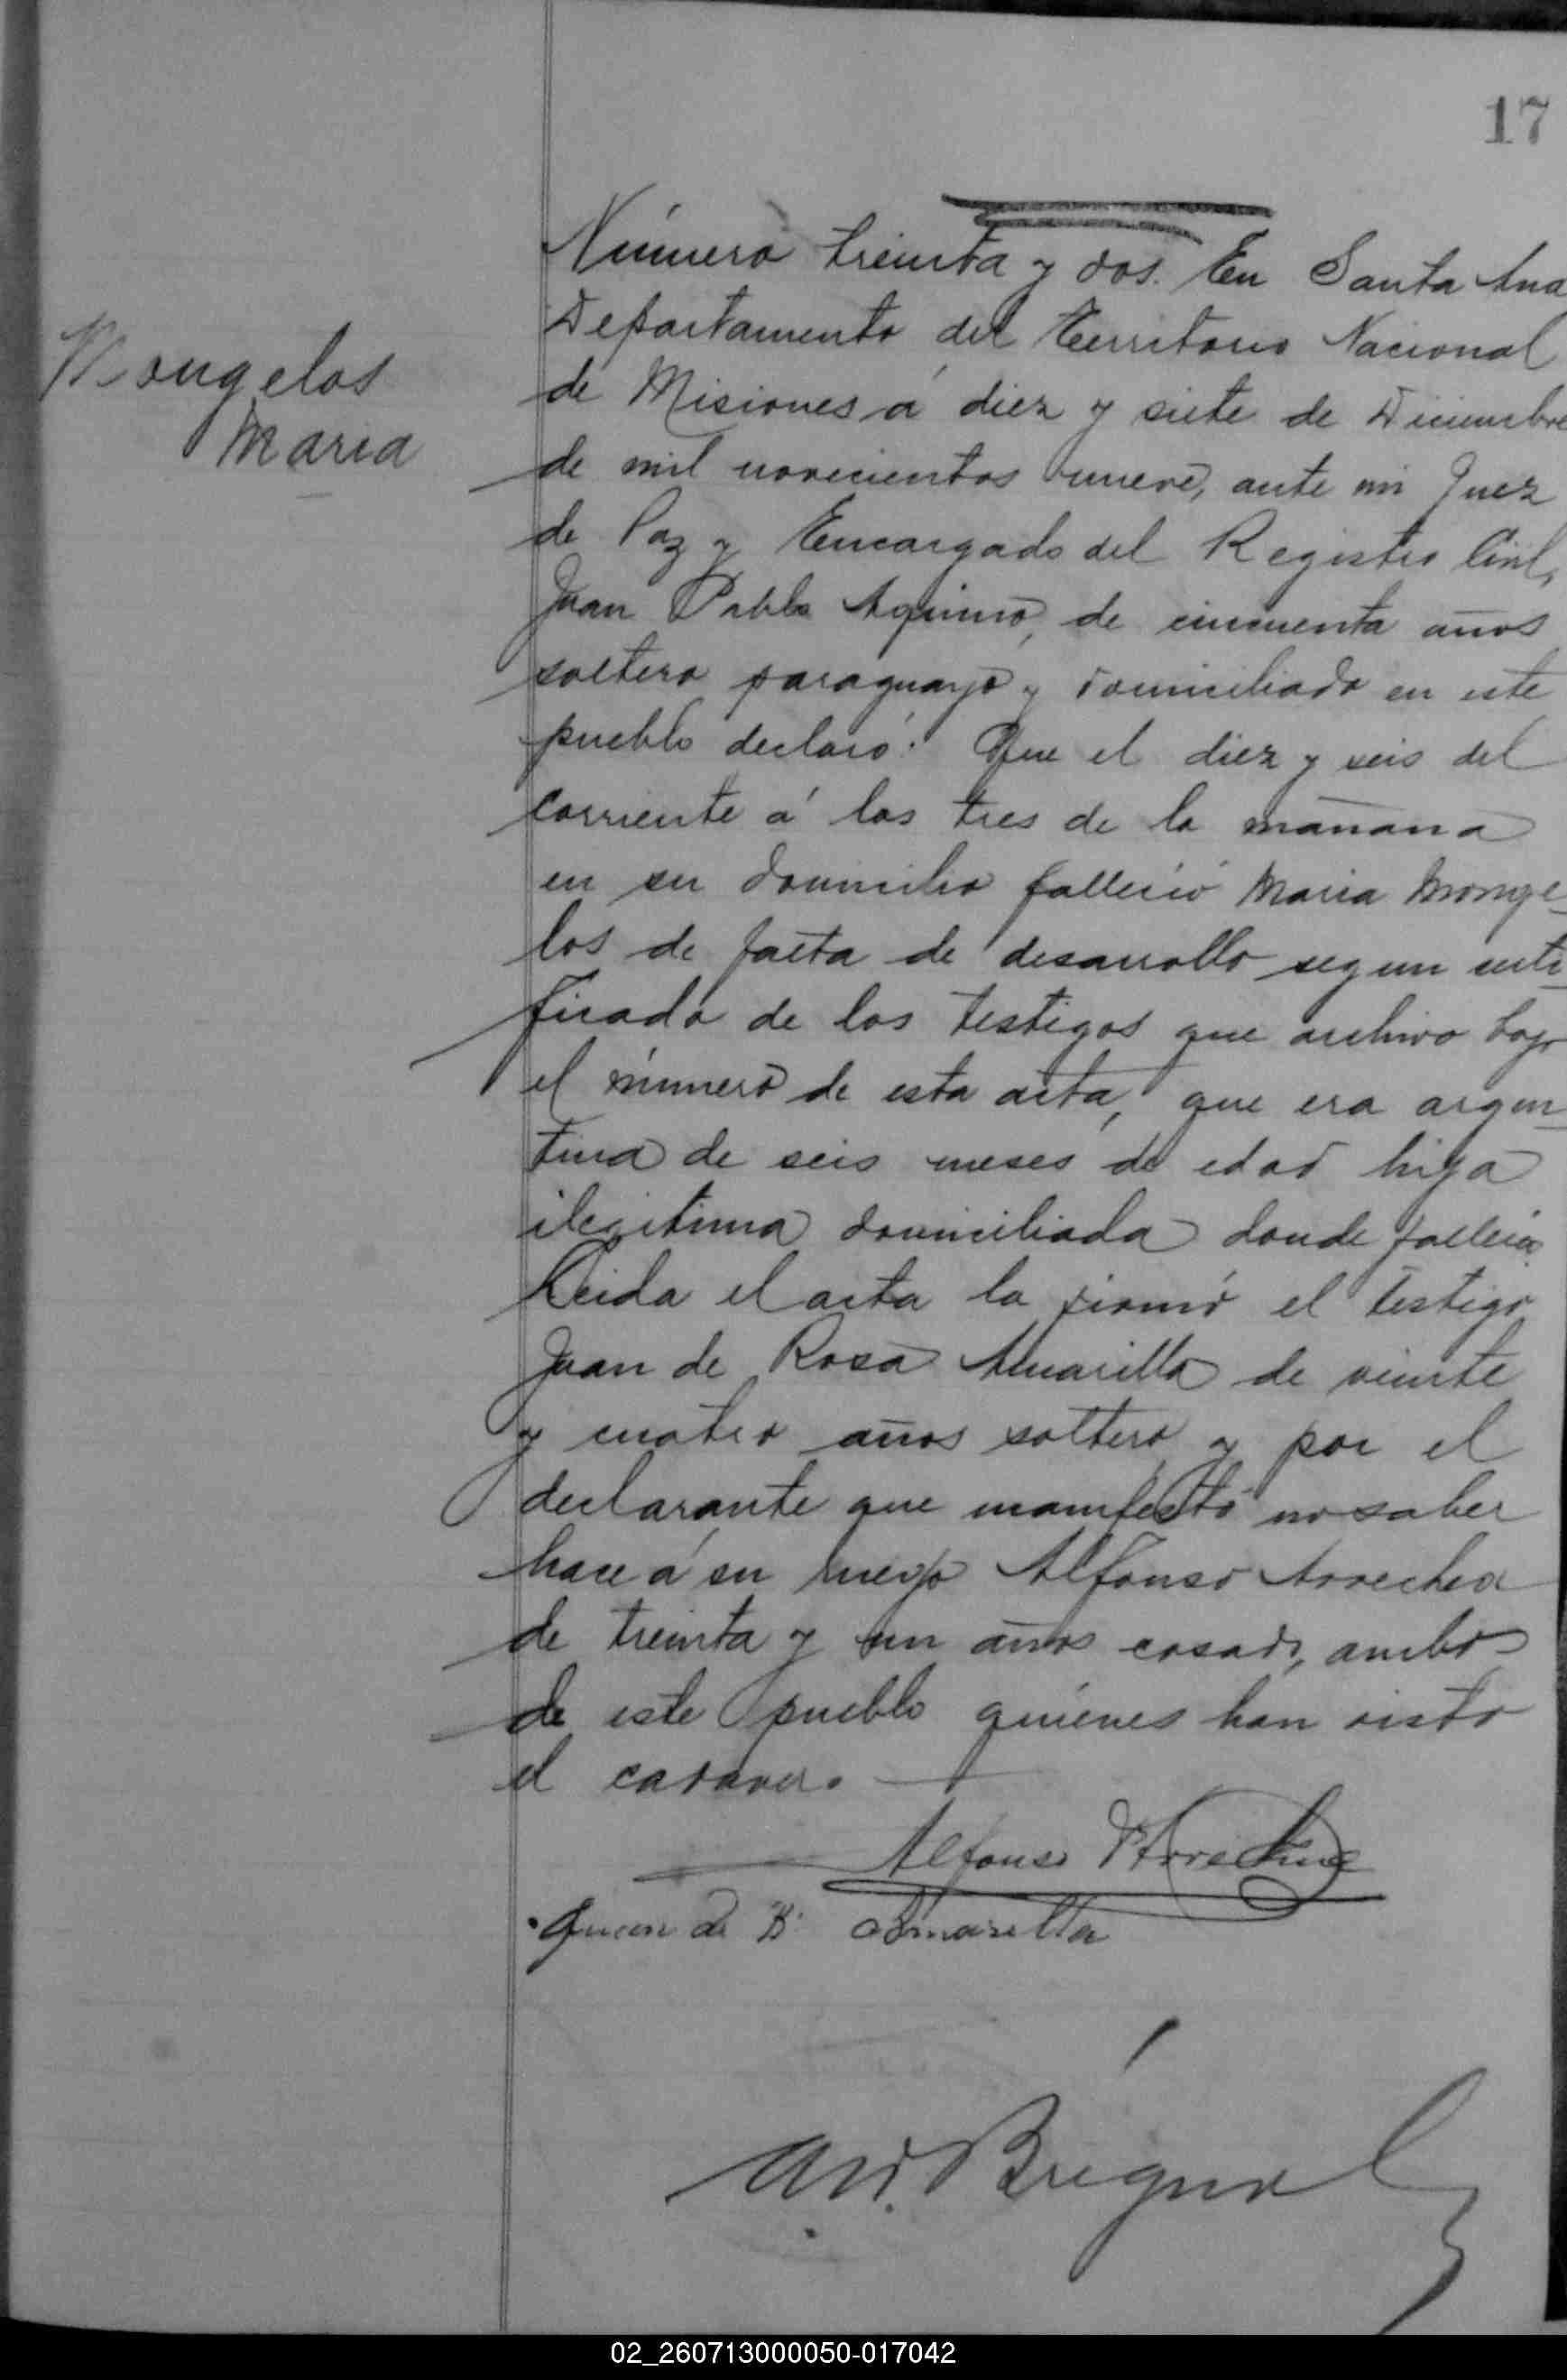 17
Número treinta y dos. En Santa Ana
Departamento del Territorio Nacional
Mongelos
de Misiones á diez y siete de Diciembre
Maria
de mil novecientos nueve, ante mi Juez
de Paz y Encargado del Registro Civil,
Juan Pablo Aquino, de cincuenta años
soltero paraguayo y domiciliado en este
pueblo declaró: Que el diez y seis del
corriente á las tres de la mañana
en su domicilio falleció Maria Monge-
los de falta de desarrollo segun certi-
ficado de los testigos que archivo bajo
el número de esta acta, que era argen-
tina de seis meses de edad hija
ilegitima domiciliada donde falleció.
Leida el acta la firmó el testigo
Juan de Rosa Amarilla de veinte
y cuatro años soltero y por el
declarante que manifestó no saber
hace á su ruego Alfonso Arrechea
de treinta y un años casado, ambos
de este pueblo quiénes han visto
el cadaver.
Alfonso Arrechea
Juan de R. Amarilla